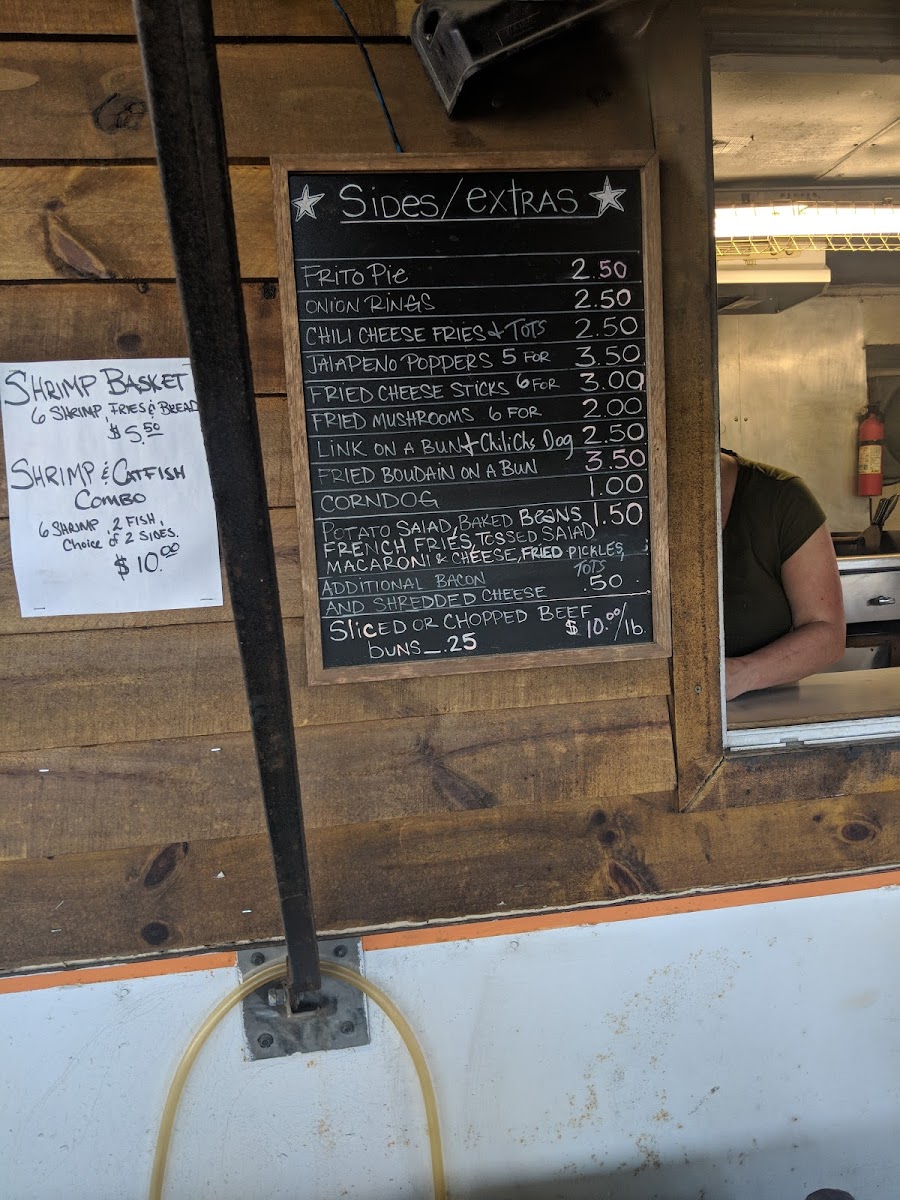 SHRIMP BASKET
6 SHRIMP, FRIES & BREAD
$5.50
SHRIMP & CATFISH
COMBO
6 SHRIMP, 2 FISH,
Choice of 2 SIDES.
$10.00
SIDES/EXTRAS
FRITO PIE 2.50
ONION RINGS 2.50
CHILI CHEESE FRIES & TOTS 2.50
JALAPENO POPPERS 5 FOR 3.50
FRIED CHEESE STICKS 6 FOR 3.00
FRIED MUSHROOMS 6 FOR 2.00
LINK ON A BUN & Chili Chs Dog 2.50
FRIED BOUDAIN ON A BUN 3.50
CORNDOG 1.00
POTATO SALAD, BAKED BEANS 1.50
FRENCH FRIES, TOSSED SALAD
MACARONI & CHEESE, FRIED PICKLES,
TOTS
ADDITIONAL BACON
AND SHREDDED CHEESE .50
SLICED OR CHOPPED BEEF
$10.00/lb.
BUNS_.25